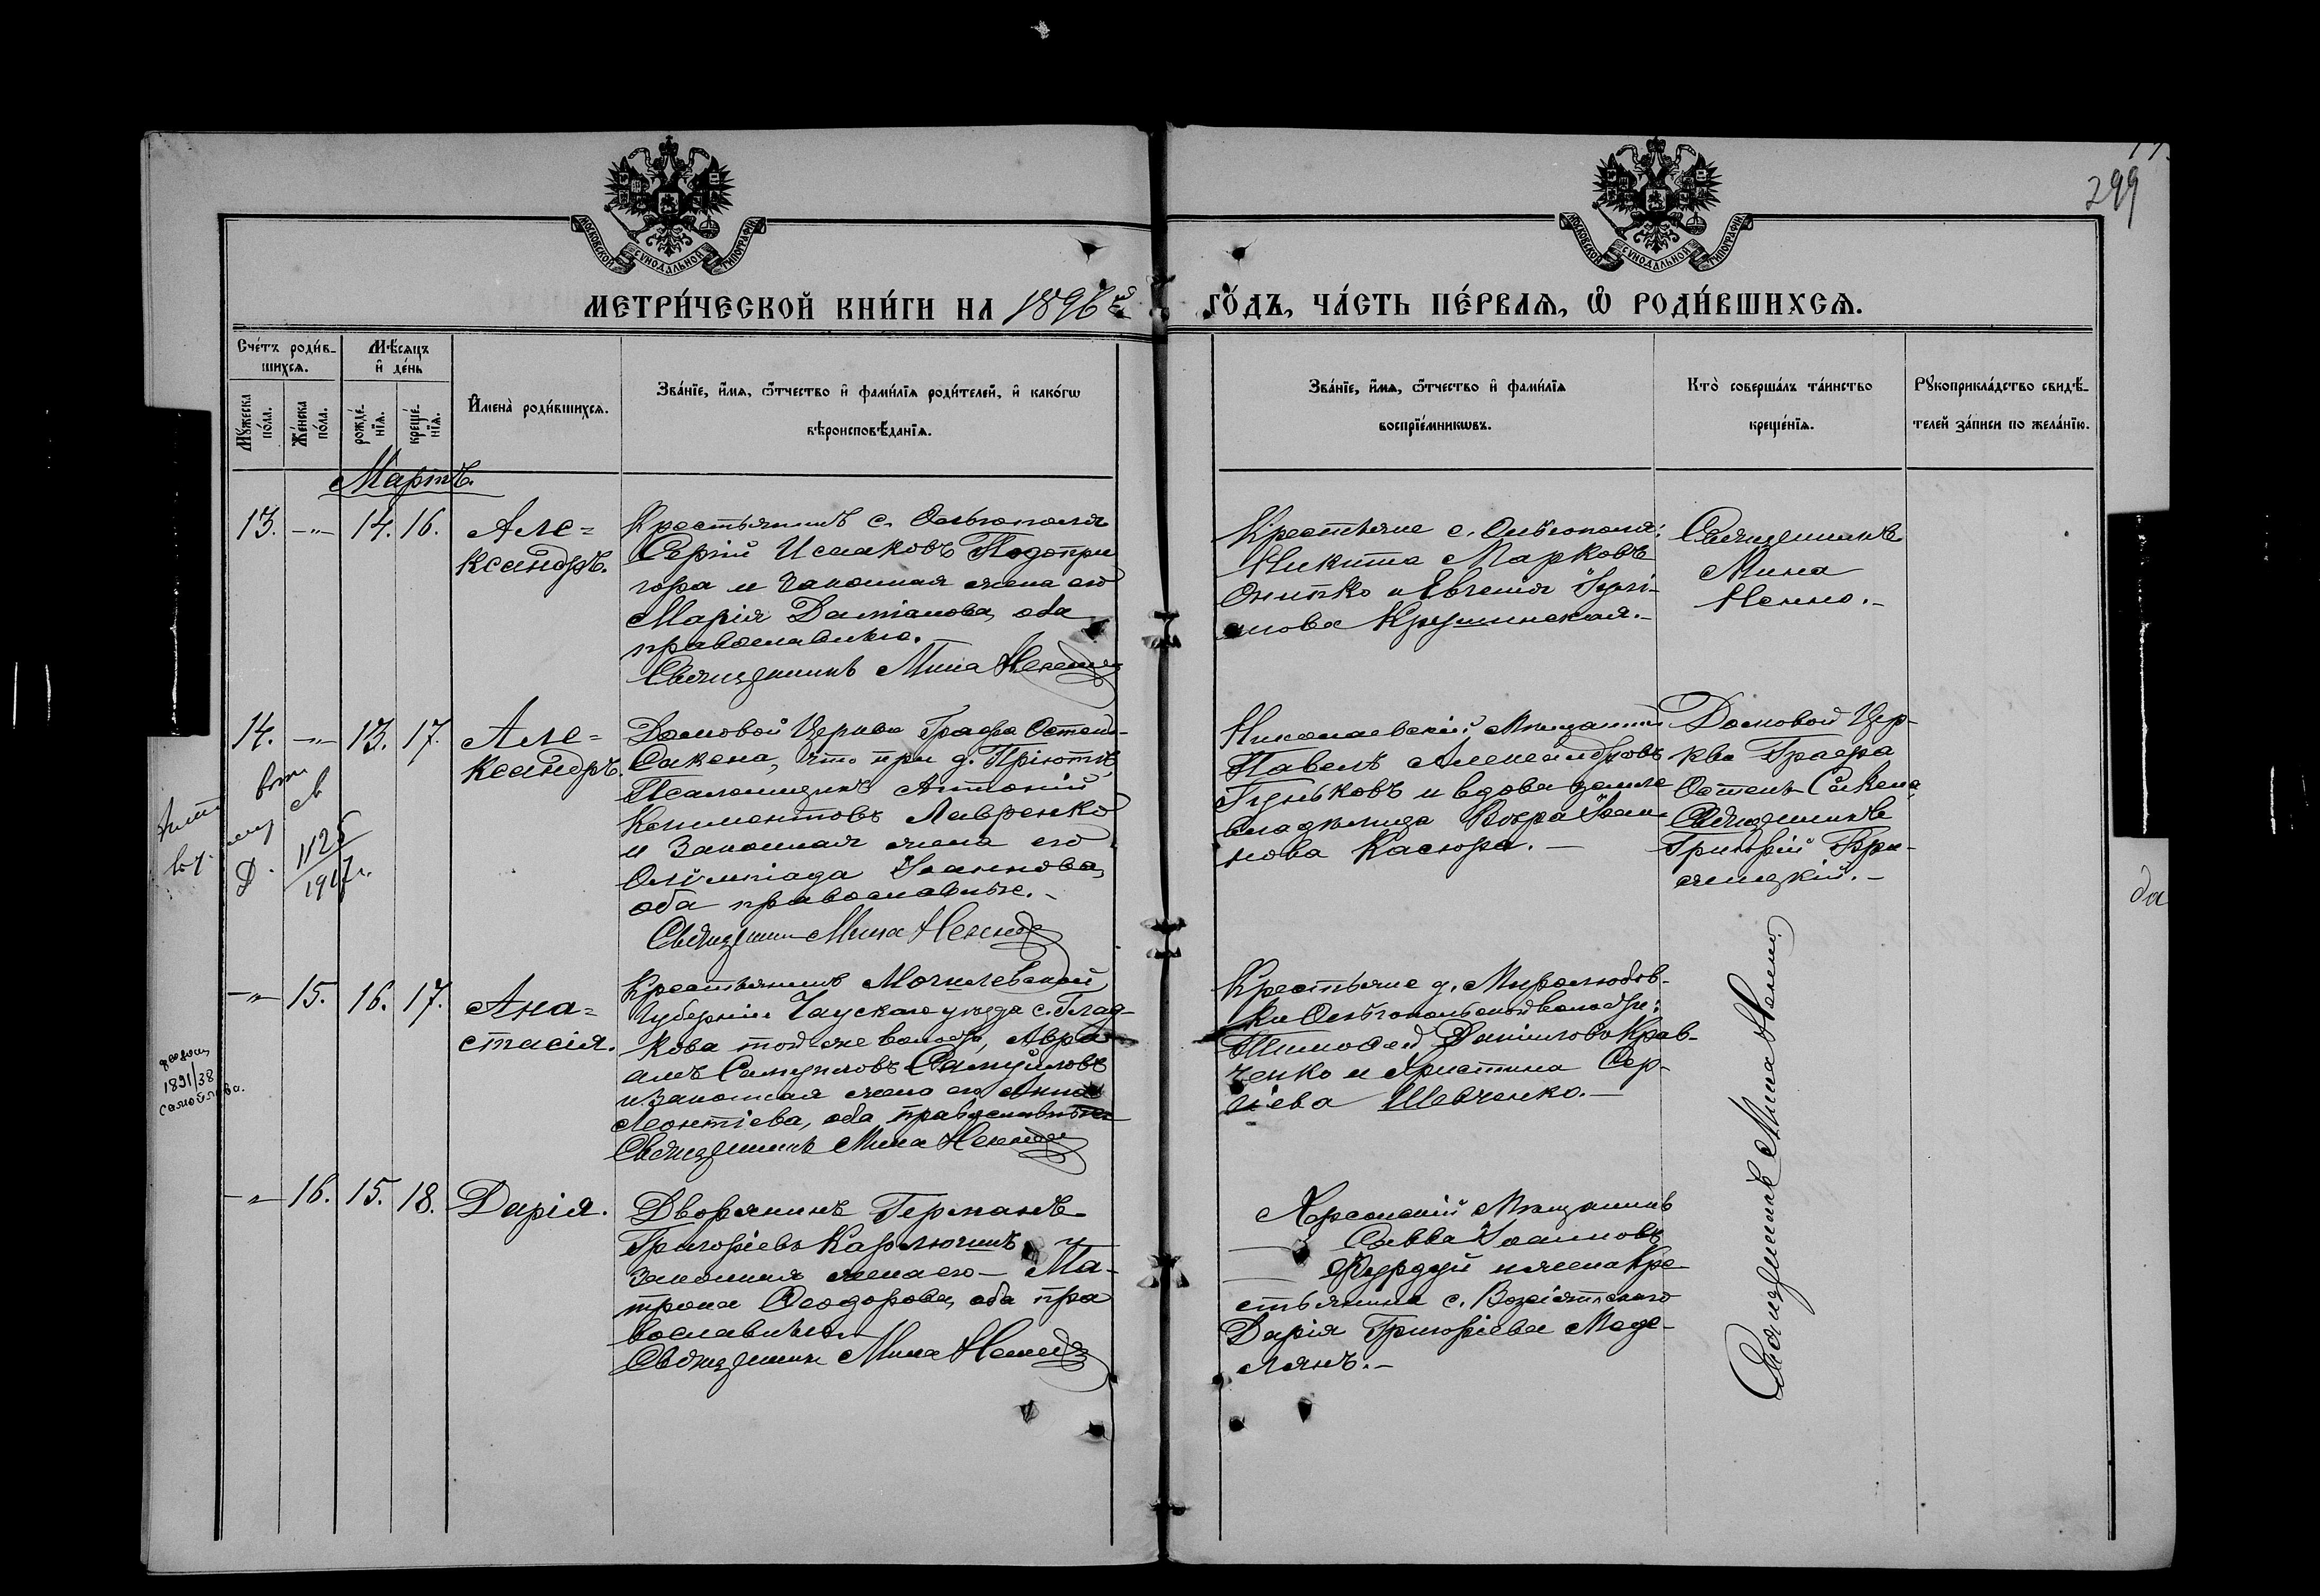 299
МОСКОВСКОЙ СѴНОДАЛЬНОЙ ТИПОГРАФІИ
МОСКОВСКОЙ СѴНОДАЛЬНОЙ ТИПОГРАФІИ
МЕТРИ́ЧЕСКОЙ КНИ́ГИ НА 1896й ГО́ДЪ, ЧА́СТЬ ПЕ́РВАѦ, Ѡ РОДИ́ВШИХСѦ.
Сче́тъ роди́в-
шихсѧ.
Мꙋжеска по́ла.
Же́нска по́ла.
Мѣ́сѧцъ
и де́нь
рожде́-
нїѧ.
креще́-
нїѧ.
И҆мена̀ роди́вшихсѧ.
Зва́нїе, и҆мѧ, ѻ҆́тчество и҆ фами́лїѧ роди́телей, и҆ како́гѡ
вѣроисповѣ́данїѧ.
Зва́нїе, и҆мѧ, ѻ҆́тчество и҆ фами́лїѧ
воспрїе́мникѡвъ.
Кто̀ соверша́лъ та́инство
креще́нїѧ.
Рꙋкоприкла́дство свидѣ́-
телей за́писи по жела́нїю.
Мартъ.
13. -"- 14. 16.
Але=
ксандръ.
Крестьянинъ с. Ольгополя
Сергій Исааковъ Подопри
гора и законная жена его
Марія Даміанова, оба
православные.
Священникъ Мина Ненно
Крестьяне с. Ольгополя:
Никита Марковъ
Онитко и Евгенія
Крушинская.-
Священникъ
Мина
Ненно.-
14. -"- 13. 17.
Але=
ксандръ.
Домовой Церкви Графа Остенъ-
Сакена, что при д. Пріютѣ,
Псаломщикъ Антоній
Климентовъ Лавренко
и Законная жена его
Олимпіада Іоаннова,
оба православные.-
Священникъ Мина Ненно
Николаевскій Мѣщанинъ
Павелъ Александровъ
Гуньковъ и вдова земле
владѣльца Вѣра Іоан-
нова Касюра.-
Домовой Цер-
кви Графа
Остенъ Сакена,
Священникъ
Григорій
Д. 1125
1917 г.
-"- 15. 16. 17.
Ана=
стасія.
Крестьянинъ Могилевской
Губерніи Чаускаго уѣзда с. Глад-
кова той же волости, Авра
амъ Самуиловъ Самуиловъ
и законная жена его Анна
Леонтіева, оба православные
Священникъ Мина Ненно
Крестьяне д. Миролюбов-
ки Ольгопольской волости:
Тимофей Даниловъ Крав-
ченко и Христина Сер-
гіева Шевченко.-
1891/38
Самойлова.
-"- 16. 15. 18. Дарія.
Дворянинъ Германъ
Григоріевъ Карлючинъ и
законная жена его - Ма-
трона Ѳеодорова, оба пра
вославные
Священникъ Мина Ненно
Херсонскій Мѣщанинъ
Савва Іоанновъ
Фурдуй и жена кре
стьянина с. Возсіятскаго
Дарія Григоріева Моде-
лянъ.-
Священникъ Мина Ненно.
да